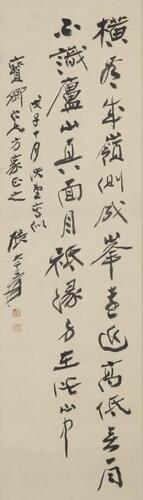 橫看成嶺側成峯遠近高低同
不識廬山真面目祗緣身在此山中
戊子十月寫似
寶卿仁兄方家正之
張大千爰